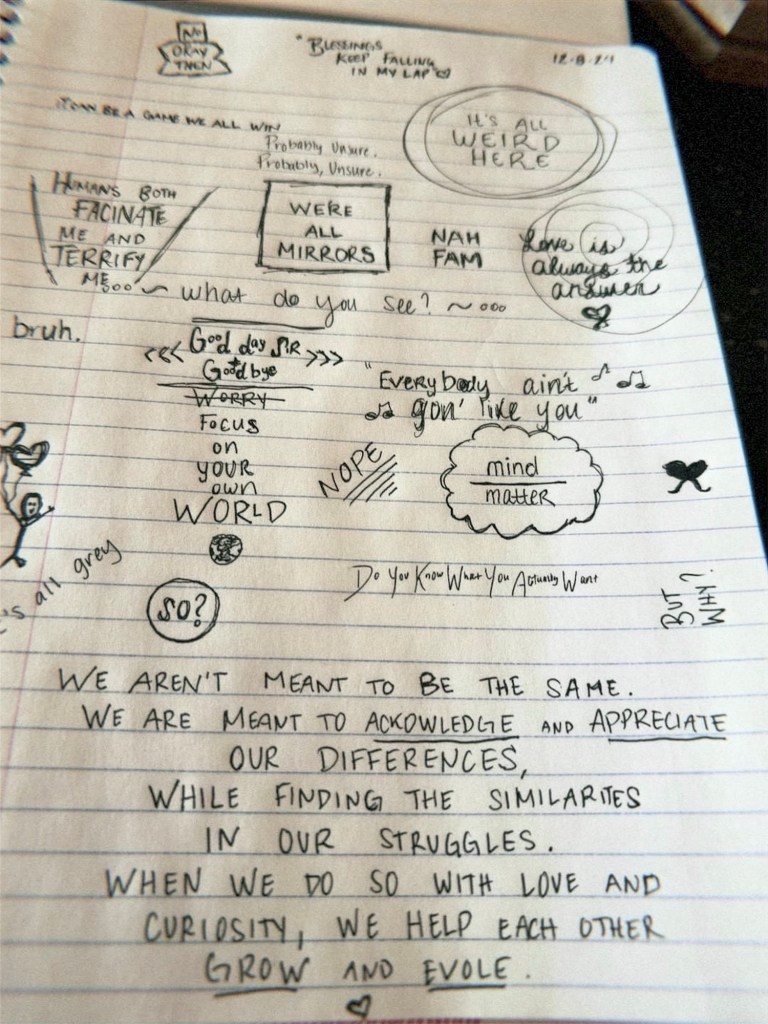 NO
OKAY
THEN
"BLESSINGS
KEEP FALLING
IN MY LAP
12-8-24
IT CAN BE A GAME WE ALL WIN
Probably Unsure.
Probably, Unsure.
IT'S ALL
WEIRD
HERE
HUMANS BOTH
FACINATE
ME AND
TERRIFY
ME...
WE'RE
ALL
MIRRORS
NAH
FAM
Love is
always the
answer
~ what do you see? ~ ...
bruh.
<<< Good day SIR >>>
Goodbye
WORRY
FOCUS
on
YOUR
own
WORLD
"Everybody ain't
gon' like you"
NOPE
mind
matter
's all grey
SO?
Do You Know What You Actually Want
BUT
WHY?
WE AREN'T MEANT TO BE THE SAME.
WE ARE MEANT TO ACKOWLEDGE AND APPRECIATE
OUR DIFFERENCES,
WHILE FINDING THE SIMILARITES
IN OUR STRUGGLES.
WHEN WE DO SO WITH LOVE AND
CURIOSITY, WE HELP EACH OTHER
GROW AND EVOLE.